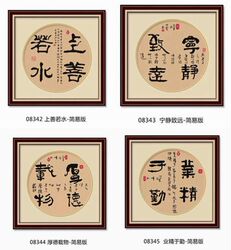 上善
若水
08342 上善若水-简易版
寧靜
致遠
08343 宁静致远-简易版
厚德
載物
08344 厚德载物-简易版
業精
于勤
08345 业精于勤-简易版